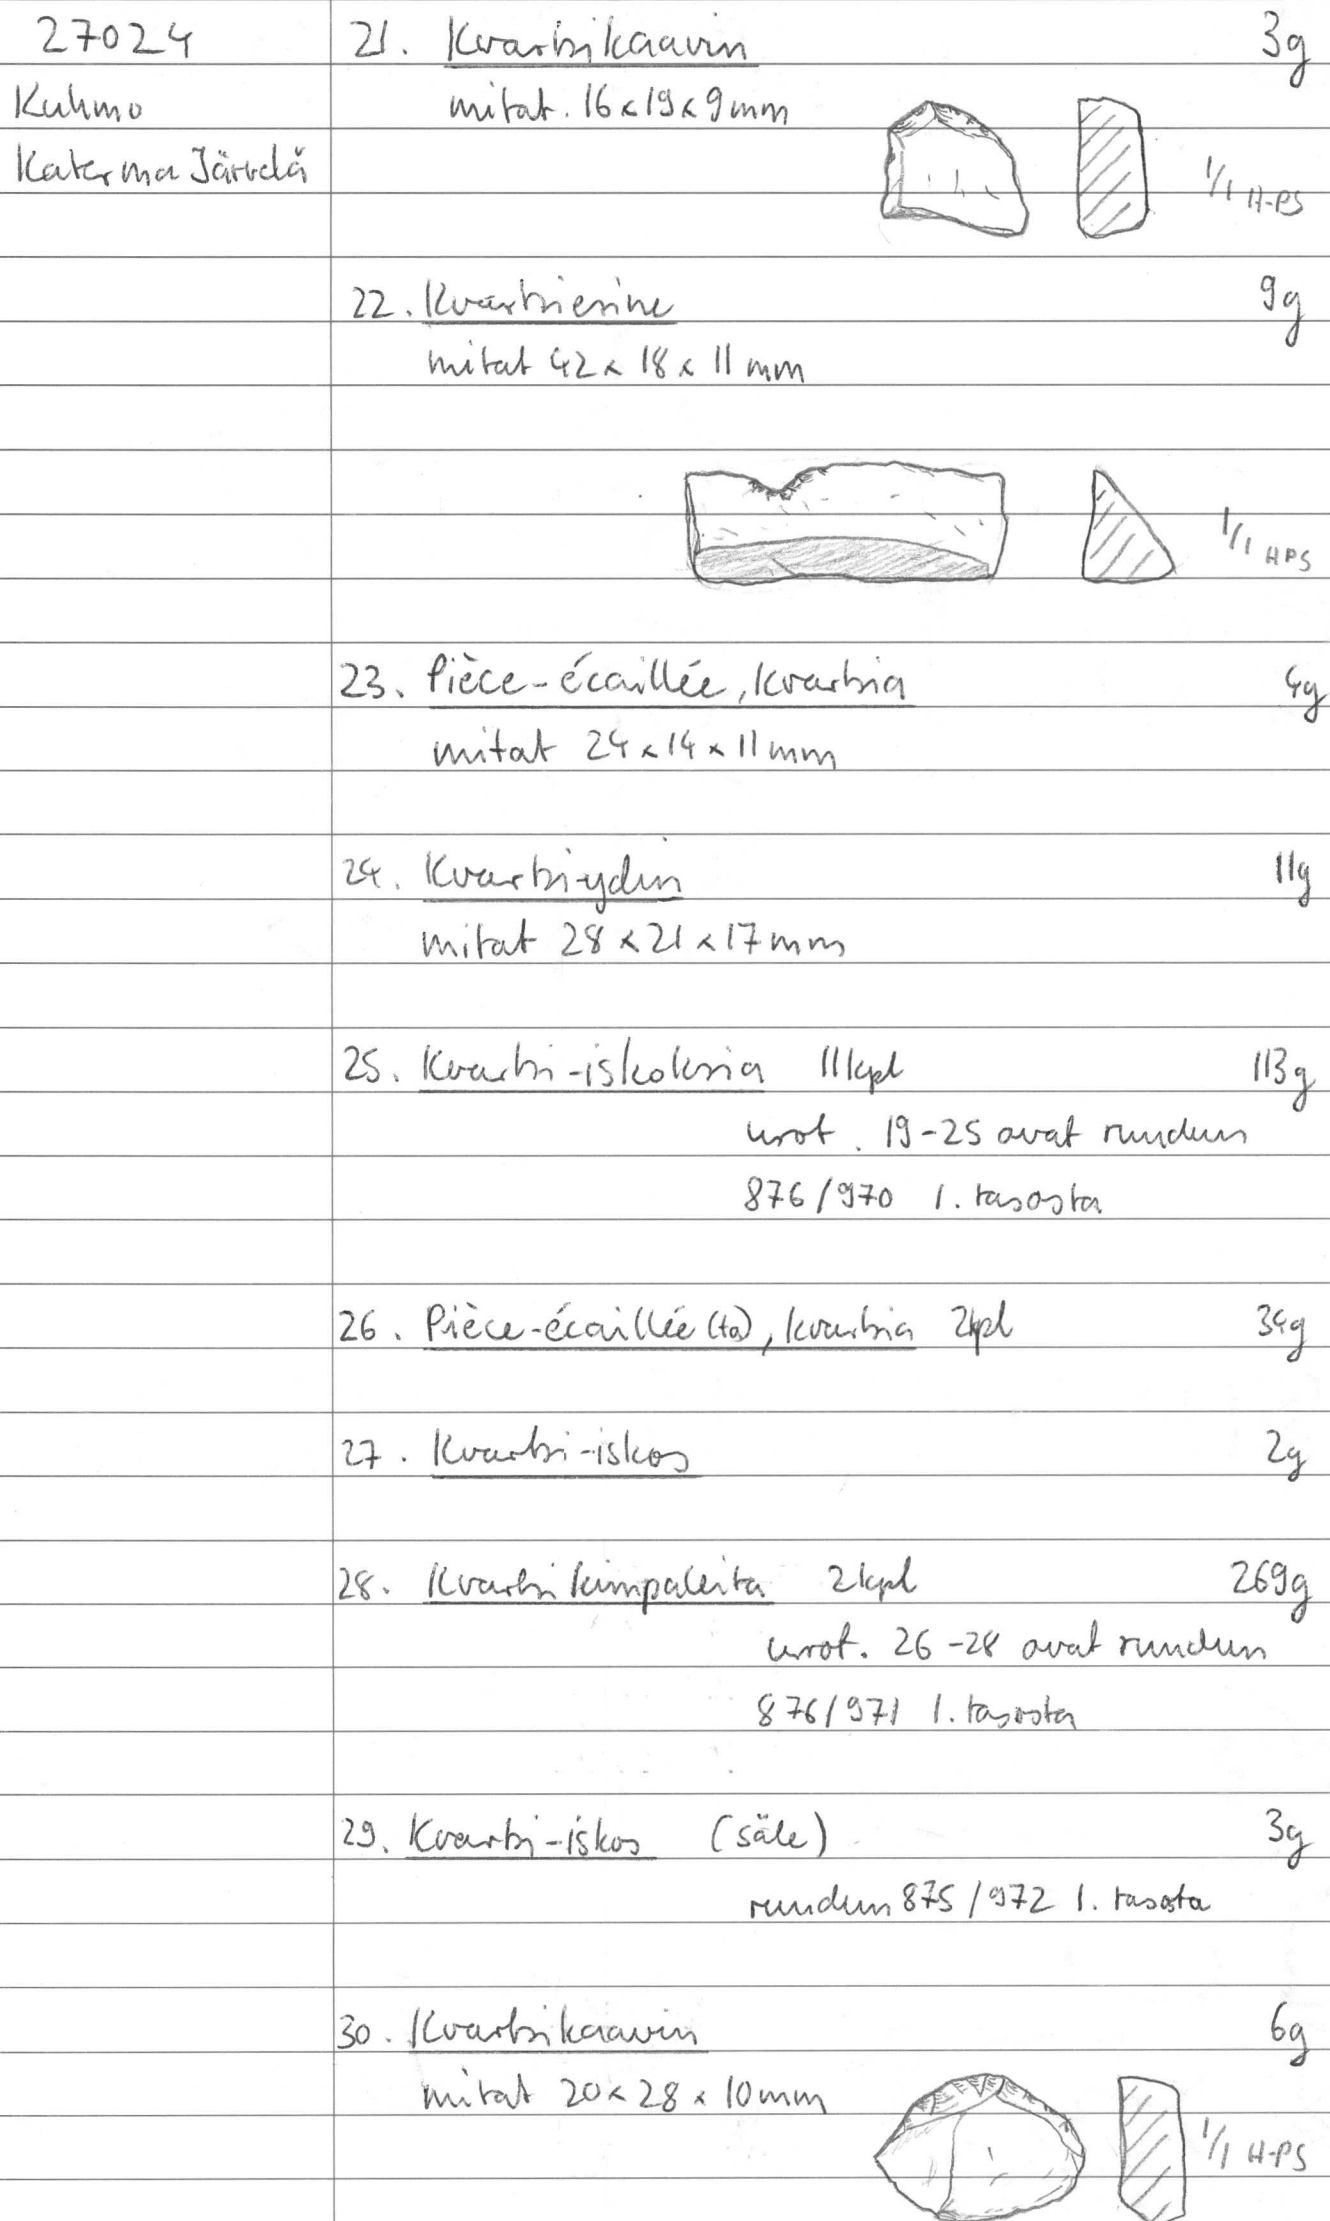 27024
Kuhmo
Katerma Järvelä
21. Kvartsikaavin 3g
mitat. 16x19x9mm
1/1 H-PS
22. Kvartsiesine 9g
mitat 42x18x11mm
1/1 HPS
23. Pièce-écaillée, kvartsia 4g
mitat 24x14x11mm
24. Kvartsiydin 11g
mitat 28x21x17mm
25. Kvartsi-iskoksia 11kpl 113g
nrot. 19-25 ovat ruudun
876/970 1. tasosta
26. Pièce-écaillée(ta), kvartsia 2kpl 34g
27. Kvartsi-iskos 2g
28. Kvartsikimpaleita 2kpl 269g
nrot. 26-28 ovat ruudun
876/971 1. tasosta
29. Kvartsi-iskos (säle) 3g
ruudun 875/972 1. tasosta
30. Kvartsikaavin 6g
mitat 20x28x10mm
1/1 H-PS